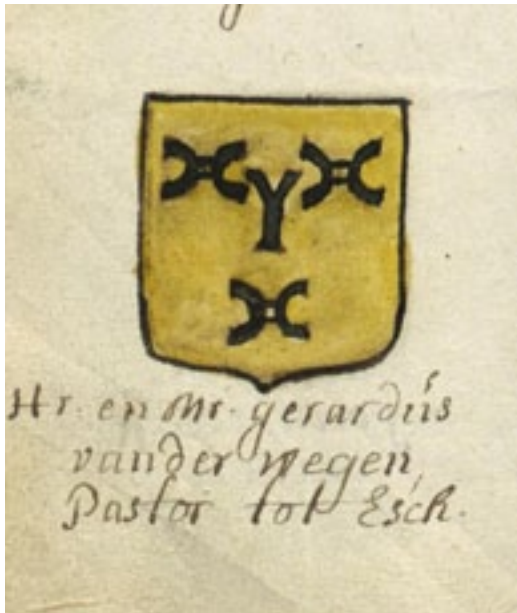 Y
Hr. en Mr. gerardús
vander wegen,
Pastor tot Esch.